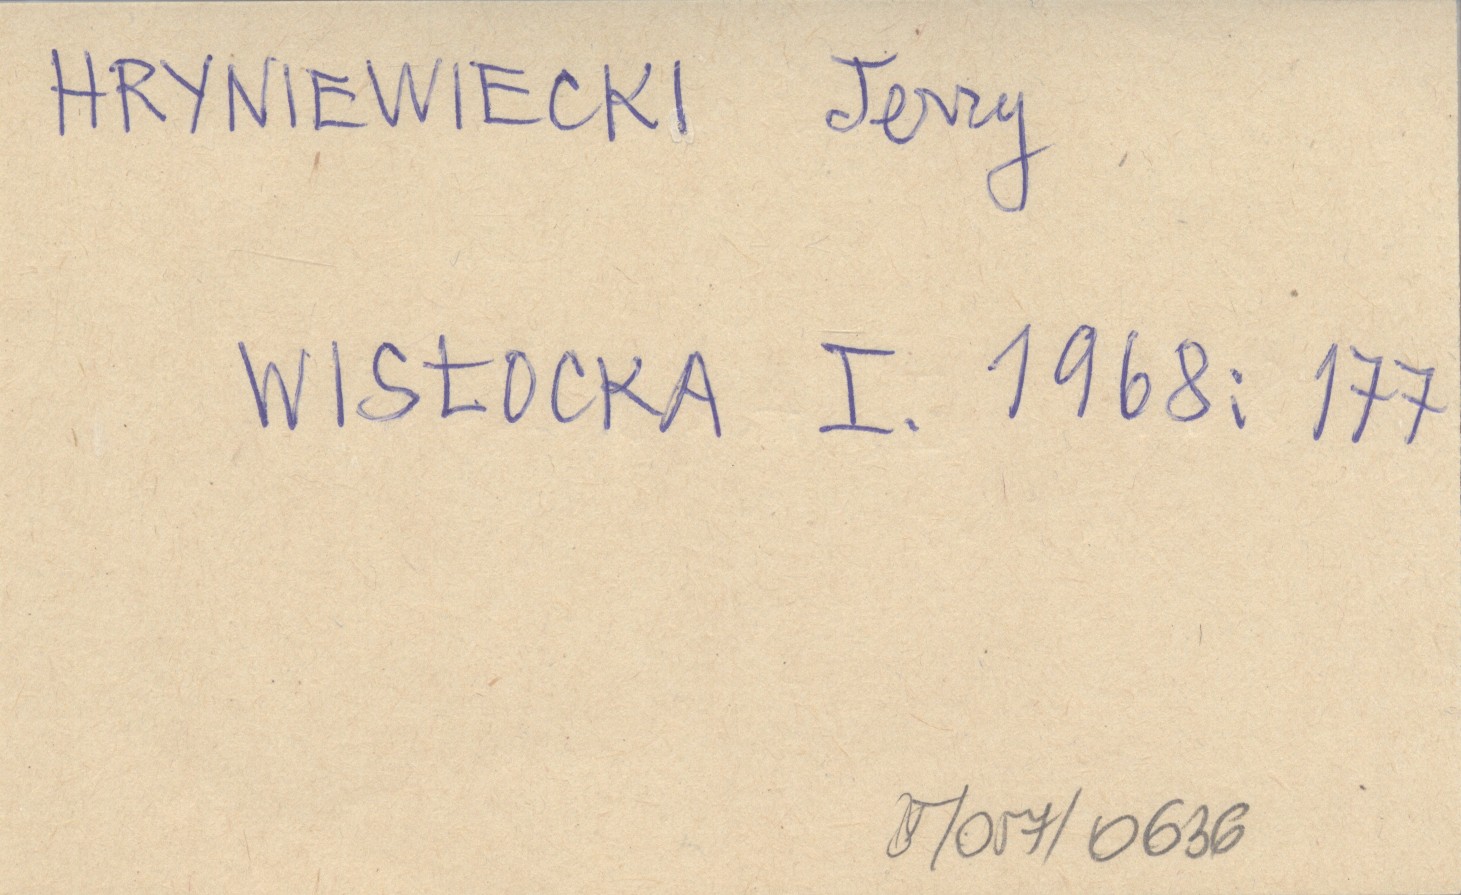 HRYNIEWIECKI Jerzy
WISŁOCKA I. 1968: 177
/057/0636